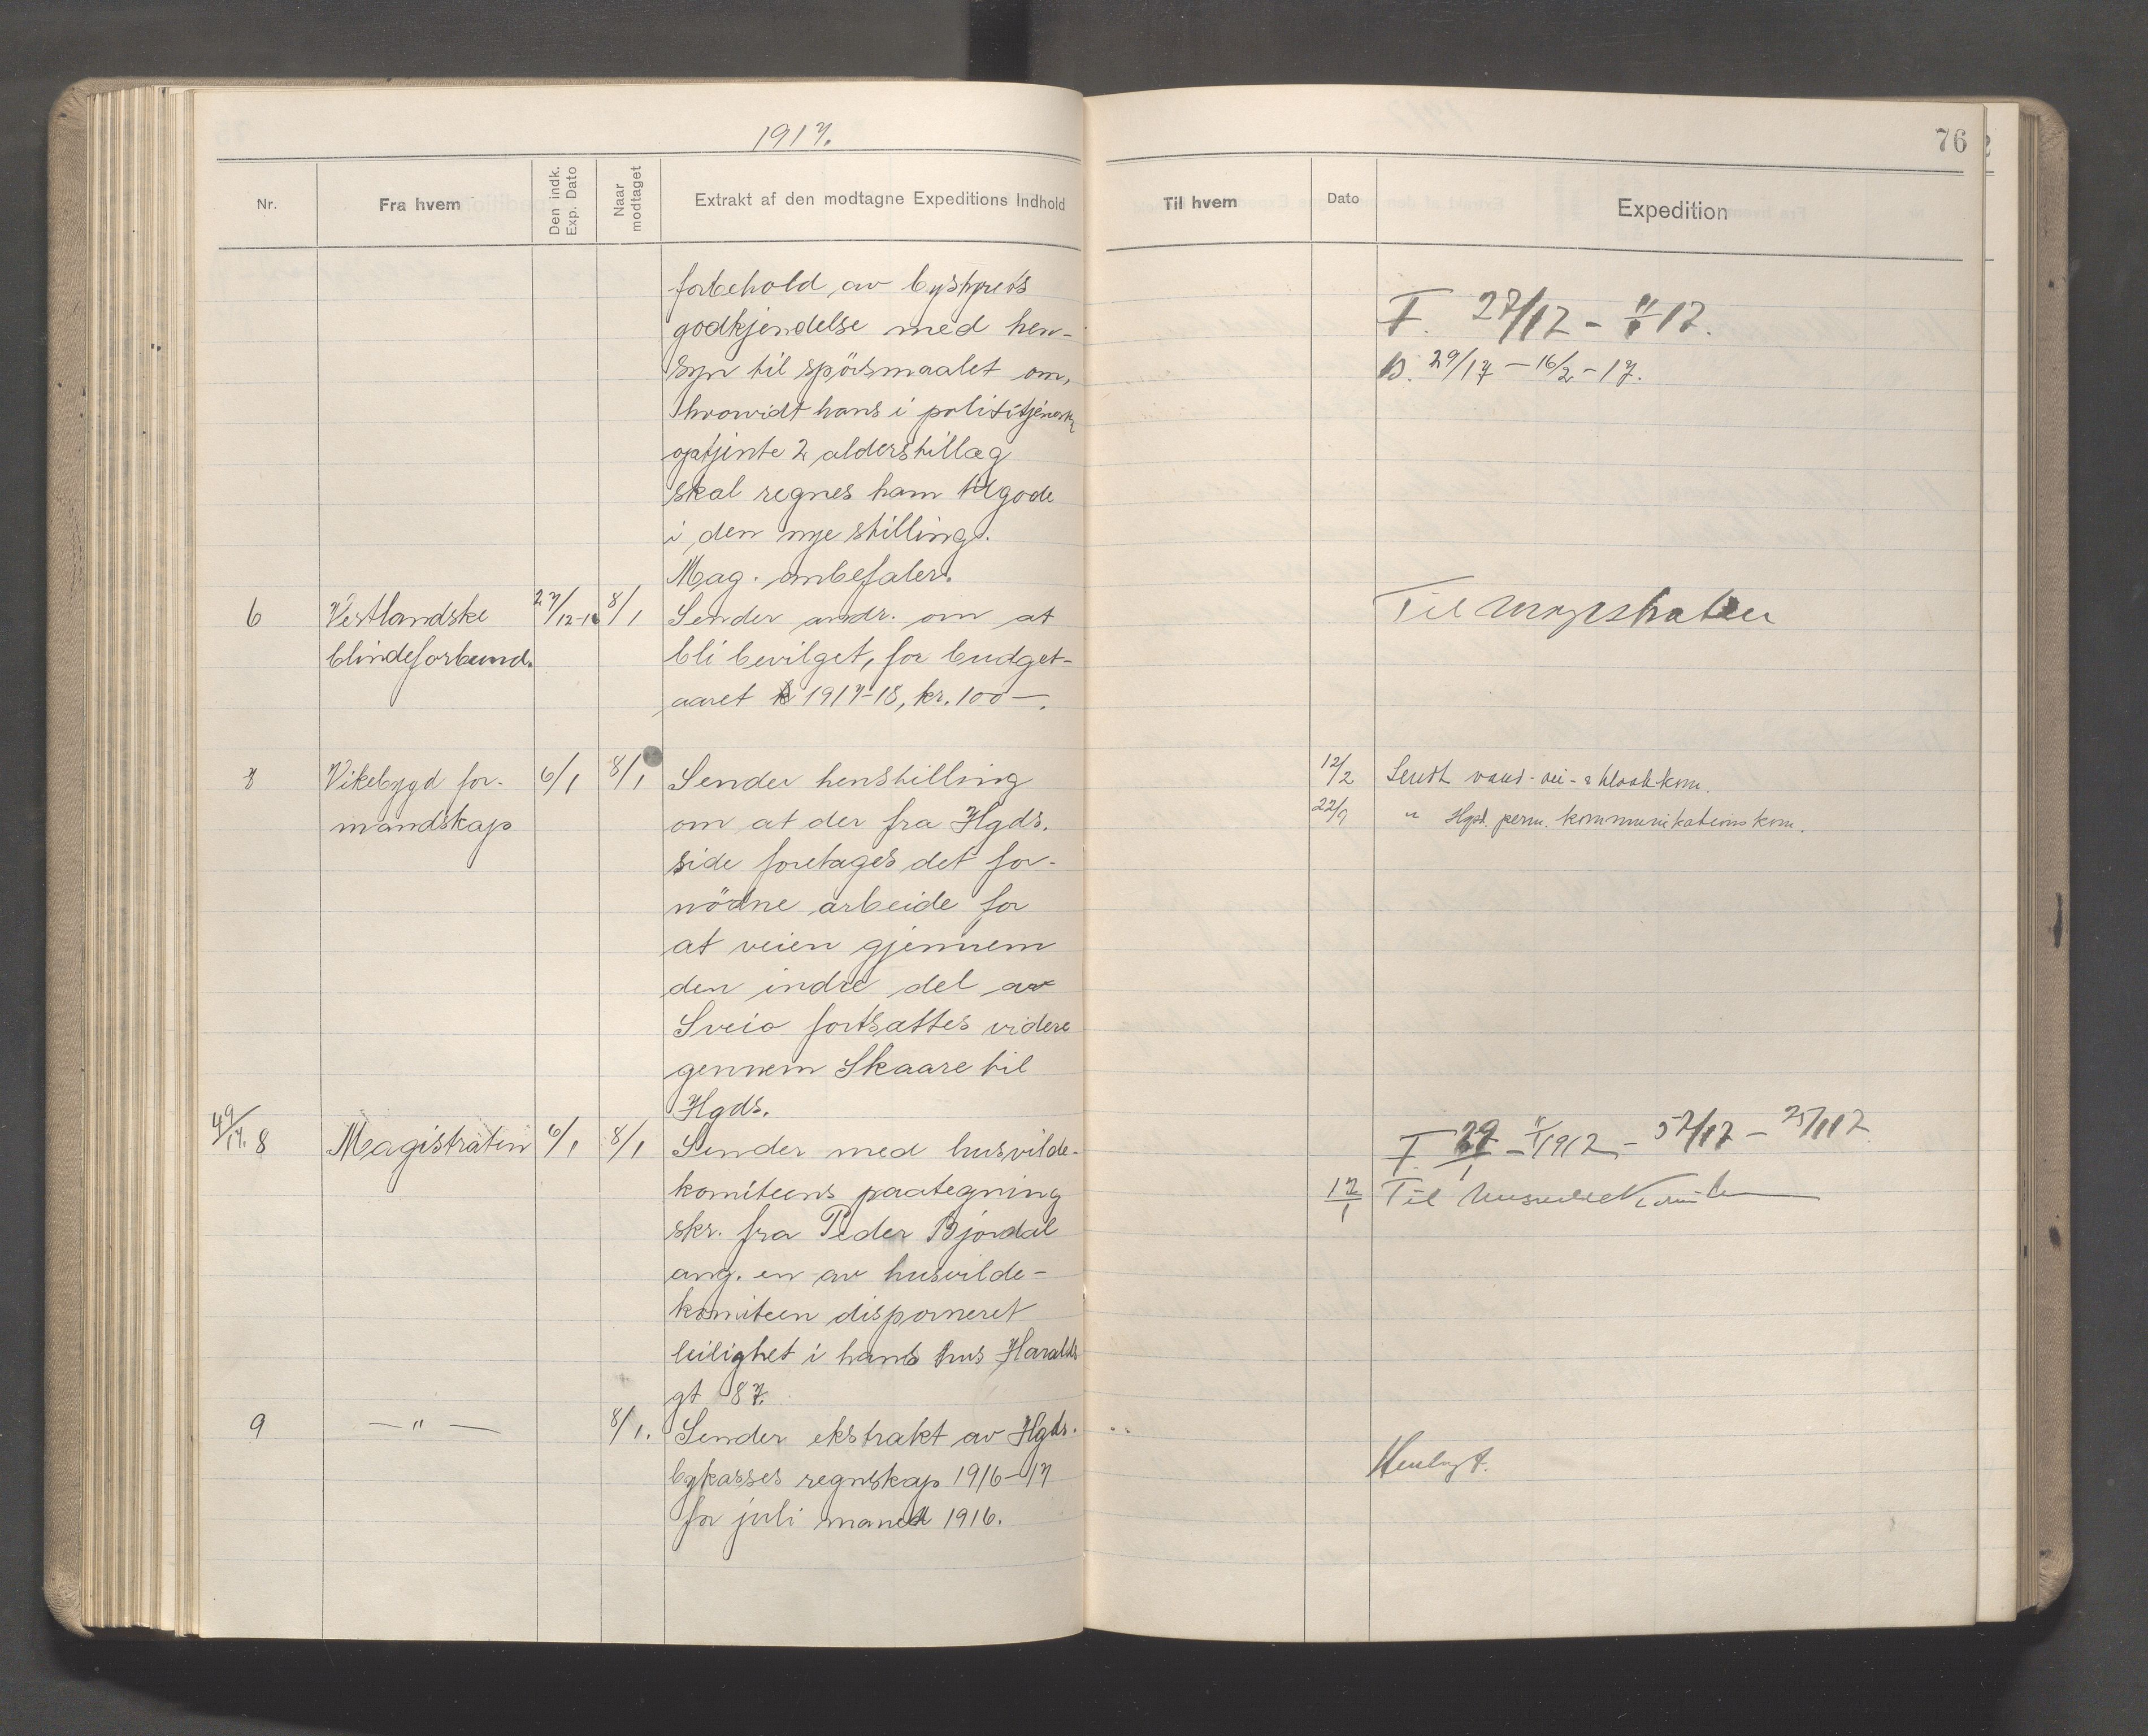 1917.
76
Nr.
Fra hvem
Den indk. Exp. Dato
Naar modtaget
Extrakt af den modtagne Expeditions Indhold
Til hvem
Dato
Expedition
forbehold av bystyrets
godkjendelse med hen-
syn til spörsmaalet om,
hvorvidt hans i polititjeneste
optjente 2 alderstillæg
skal regnes ham tilgode
i den nye stilling.
Mag. anbefaler.
F. 27/17 - 17.
B. 29/17 - 16/2 - 17.
6 Vestlandske 27/12-16 8/1 Sender andr. om at Til magistraten
blindeforbund. bli bevilget, for budget-
aaret 1917-18, kr. 100 —.
7 Vikebygd for- 6/1 8/1 Sender henstilling 12/2 Sendt vand- vei- & kloak-kom.
mandskap om at der fra Hgds. 22/9 " Hgsd. perm. kommunikationskom.
side foretages det for-
nödne arbeide for
at veien gjennem
den indre del av
Sveio fortsattes videre
gennem Skaare til
Hgds.
49/17. 8 Magistraten 6/1 8/1 Sender med husvilde- F. 29 - 1917 - 52/17 - 25/1 17
komiteens paategning 17/1 Til
skr. fra Peder Bjordal
ang. en av husvilde-
komiteen disponeret
leilighet i hans hus Haralds
gt 87.
9 — " — 8/1. Sender ekstrakt av Hgds.
bykasses regnskap 1916-17 Henlagt.
for juli maned 1916.